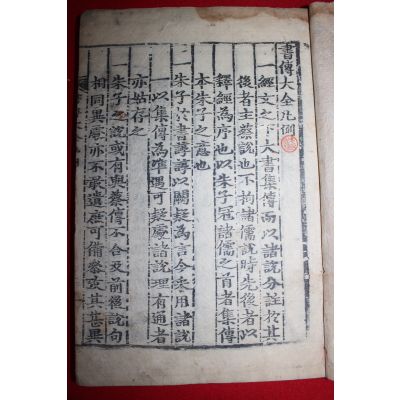 書傳大全凡例
一經文之下大書集傳而以諸說分註於其
後者主蔡說也不拘諸儒說時先後者以
釋經為序也以朱子冠諸儒之首者集傳
本朱子之意也
朱子於書謹謹以闕疑為言今采用諸說
一以集傳為準遇可疑處諸說理有通者
亦姑存之
一朱子之說或有與蔡傳不合及前後說句
相同異處亦不敢遺庶可備參攷其甚異